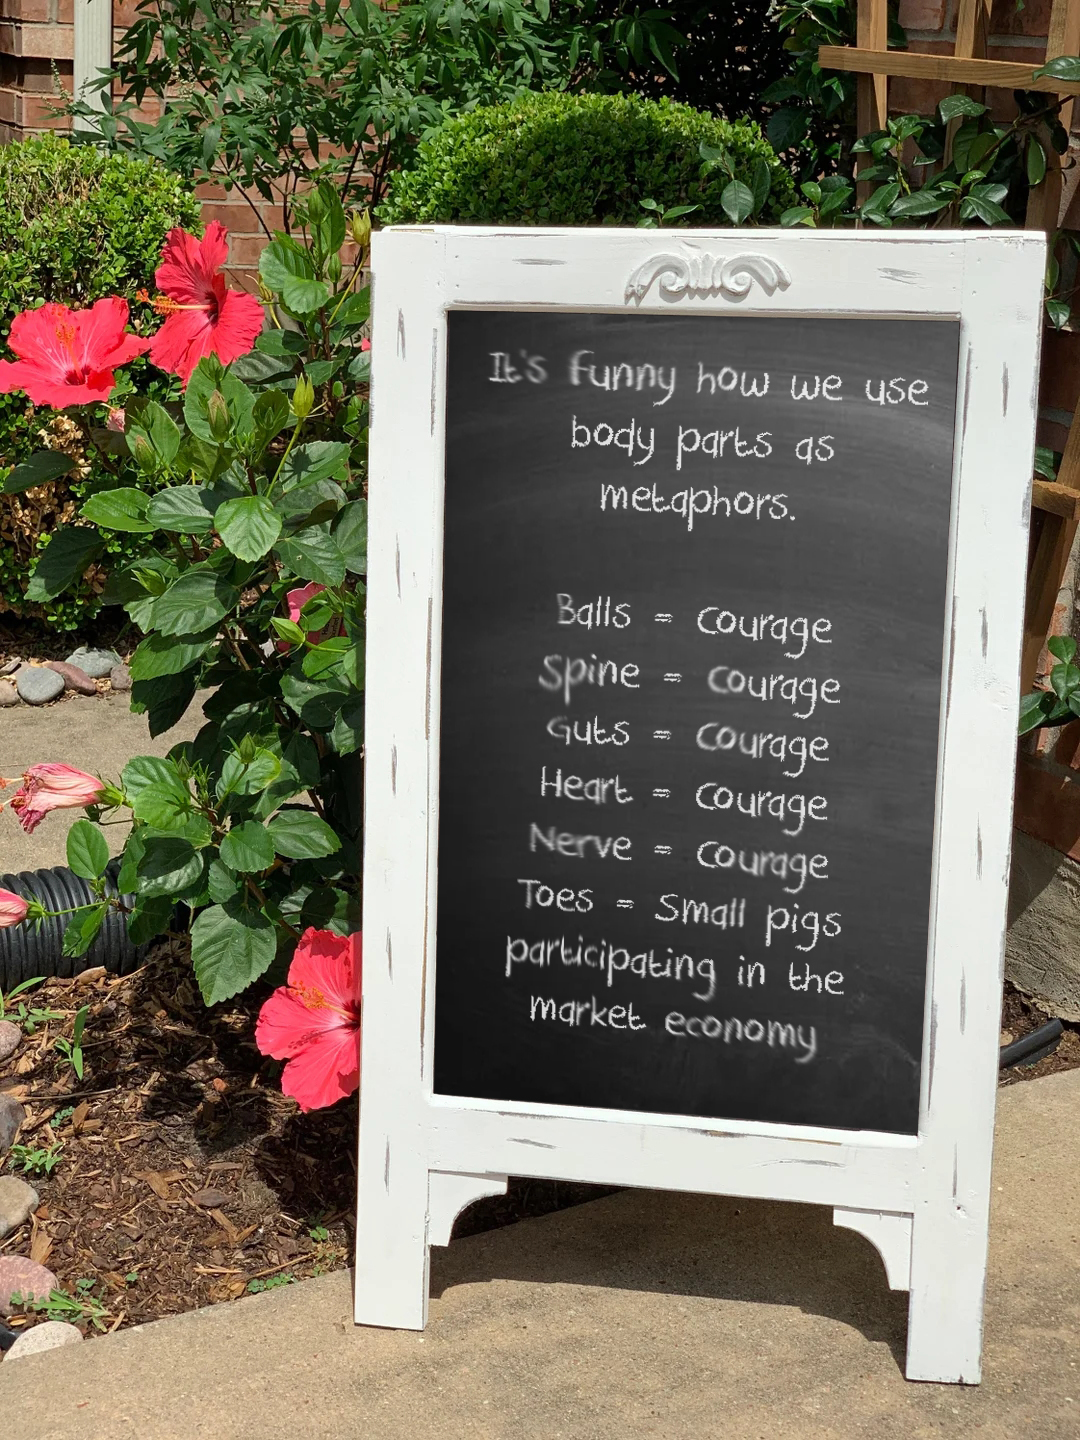 It's funny how we use
body parts as
metaphors.
Balls = Courage
Spine = Courage
Guts = Courage
Heart = Courage
Nerve = Courage
Toes = Small pigs
participating in the
market economy